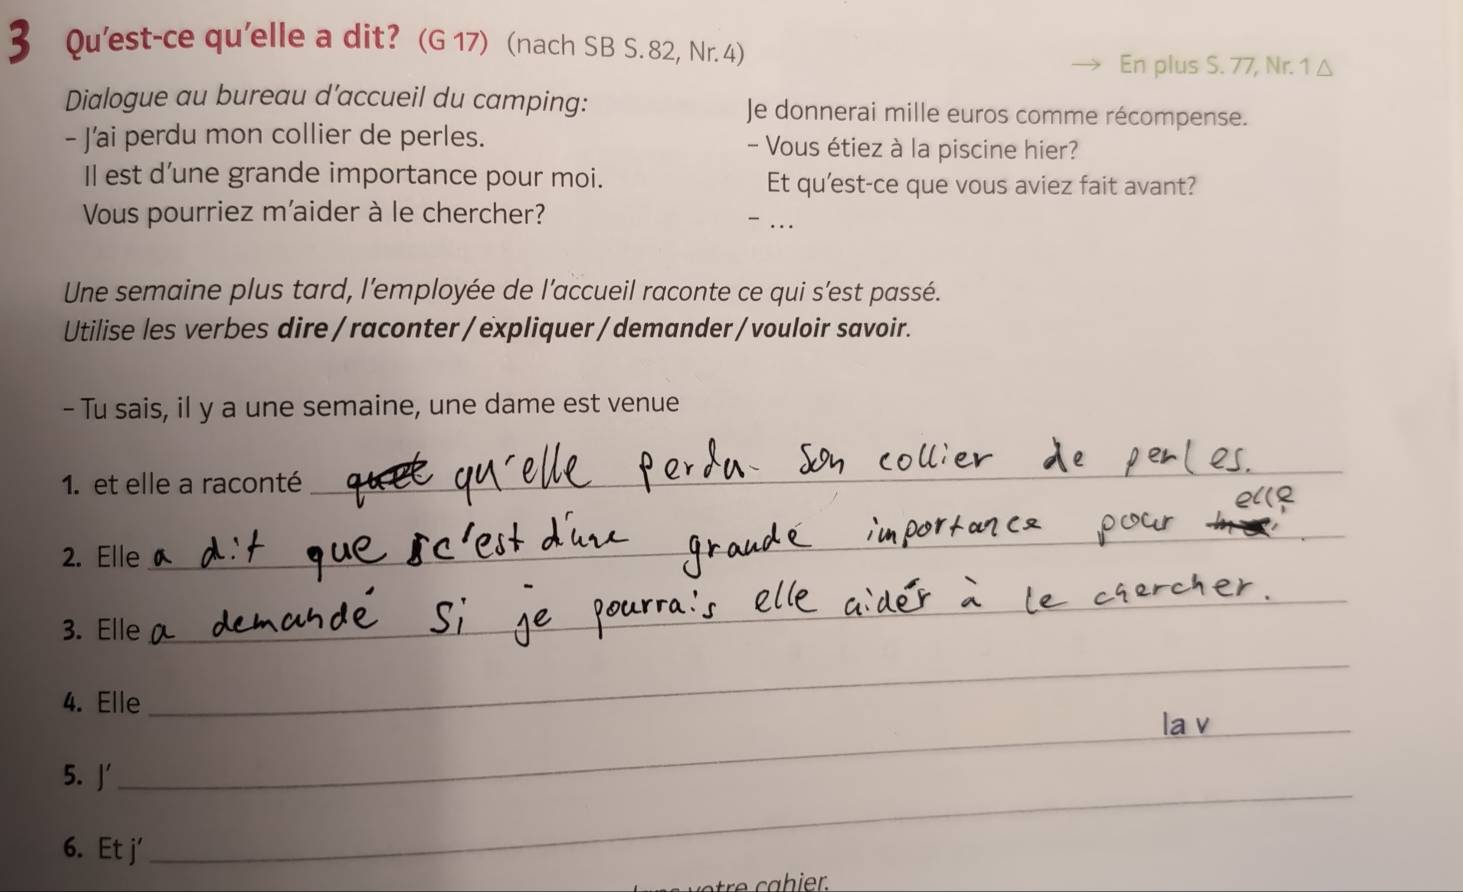 3 Qu'est-ce qu'elle a dit? (G 17) (nach SB S. 82, Nr. 4)
→ En plus S. 77, Nr. 1 △
Dialogue au bureau d'accueil du camping:
- J'ai perdu mon collier de perles.
Il est d'une grande importance pour moi.
Vous pourriez m'aider à le chercher?
Je donnerai mille euros comme récompense.
- Vous étiez à la piscine hier?
Et qu'est-ce que vous aviez fait avant?
- ...
Une semaine plus tard, l'employée de l'accueil raconte ce qui s'est passé.
Utilise les verbes dire / raconter / expliquer / demander / vouloir savoir.
- Tu sais, il y a une semaine, une dame est venue
1. et elle a raconté qu'elle perdu son collier de perles.
2. Elle a dit que c'est d'une grande importance pour elle.
3. Elle a demandé si je pourrais elle aider à le chercher.
4. Elle
la v
5. J'
6. Et j'
votre cahier.